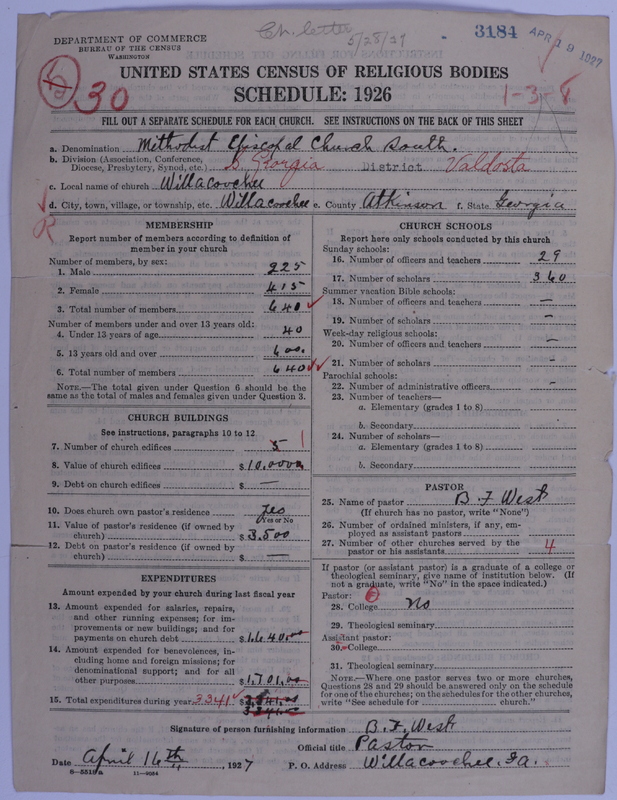 Ch. letter
5/28/29
3184 APR 19 1927
DEPARTMENT OF COMMERCE
BUREAU OF THE CENSUS
WASHINGTON
5 30
UNITED STATES CENSUS OF RELIGIOUS BODIES
SCHEDULE: 1926
1-3-8
FILL OUT A SEPARATE SCHEDULE FOR EACH CHURCH. SEE INSTRUCTIONS ON THE BACK OF THIS SHEET
a. Denomination Methodist Episcopal Church South.
b. Division (Association, Conference, Diocese, Presbytery, Synod, etc.) S. Georgia District Valdosta
c. Local name of church Willacoochee
d. City, town, village, or township, etc. Willacoochee e. County Atkinson f. State Georgia
R
MEMBERSHIP
Report number of members according to definition of
member in your church
Number of members, by sex:
1. Male 225
2. Female 415
3. Total number of members 640
Number of members under and over 13 years old:
4. Under 13 years of age 40
5. 13 years old and over 600.
6. Total number of members 640
NOTE.—The total given under Question 6 should be
same as the total of males and females given under Question 3.
CHURCH BUILDINGS
See instructions, paragraphs 10 to 12
7. Number of church edifices 5 1
8. Value of church edifices $10,000
9. Debt on church edifices $ —
10. Does church own pastor's residence yes
Yes or No
11. Value of pastor's residence (if owned by
church) $3,500
12. Debt on pastor's residence (if owned by
church) $ —
EXPENDITURES
Amount expended by your church during last fiscal year
13. Amount expended for salaries, repairs,
and other running expenses; for im-
provements or new buildings; and for
payments on church debt $1640.00
14. Amount expended for benevolences, in-
cluding home and foreign missions; for
denominational support; and for all
other purposes $1,701.00
15. Total expenditures during year 3341 $3,341.00
3341.00
CHURCH SCHOOLS
Report here only schools conducted by this church
Sunday schools:
16. Number of officers and teachers 29
17. Number of scholars 360
Summer vacation Bible schools:
18. Number of officers and teachers —
19. Number of scholars —
Week-day religious schools:
20. Number of officers and teachers —
21. Number of scholars —
Parochial schools:
22. Number of administrative officers
23. Number of teachers—
a. Elementary (grades 1 to 8)
b. Secondary
24. Number of scholars—
a. Elementary (grades 1 to 8)
b. Secondary
PASTOR
25. Name of pastor B. F West
(If church has no pastor, write "None")
26. Number of ordained ministers, if any, em-
ployed as assistant pastors
27. Number of other churches served by the
pastor or his assistants 4
If pastor (or assistant pastor) is a graduate of a college or
theological seminary, give name of institution below. (If
not a graduate, write "No" in the space indicated.)
Pastor:
28. College No
29. Theological seminary
Assistant pastor:
30. College
31. Theological seminary
NOTE.—Where one pastor serves two or more churches,
Questions 28 and 29 should be answered only on the schedule
for one of the churches; on the schedules for the other churches,
write "See schedule for church."
Signature of person furnishing information B. F. West
Official title Pastor
Date April 16th, 1927 P. O. Address Willacoochee, Ga.
8—5518a 11—9084